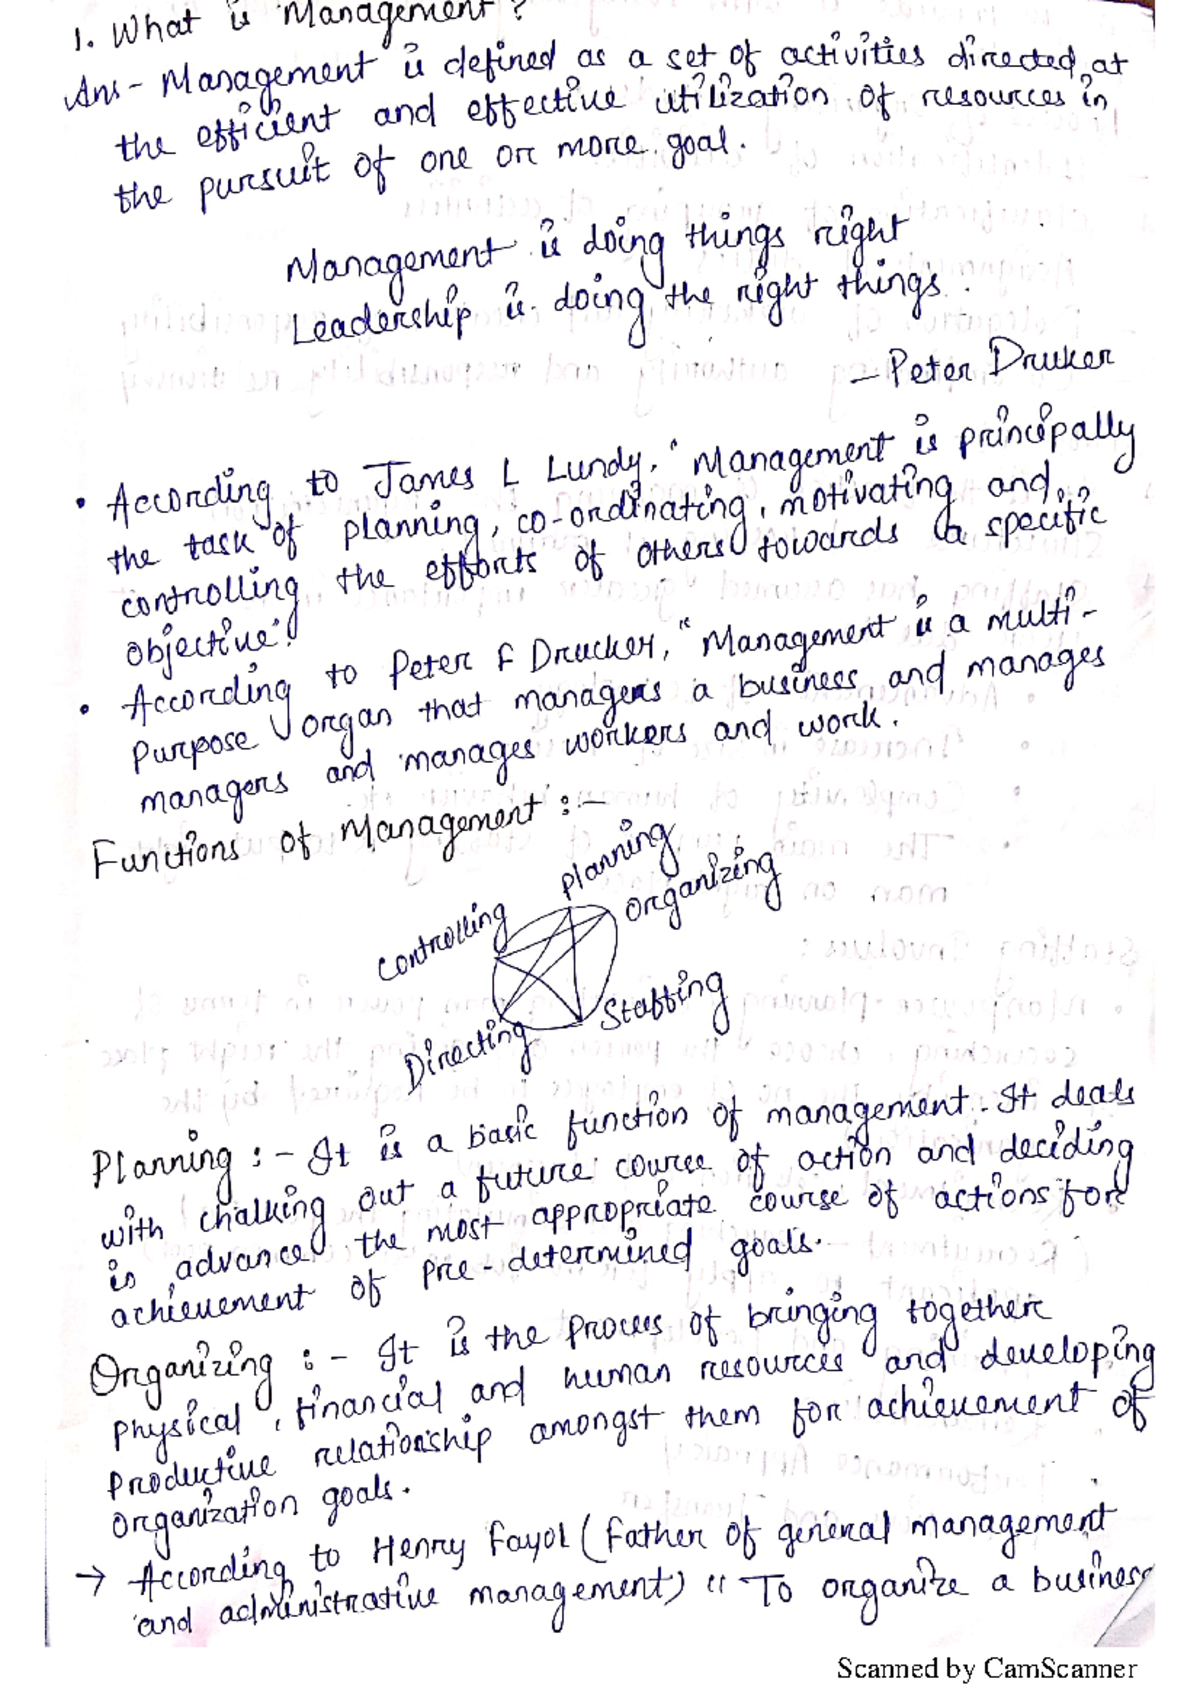 1. What is Management?
Ans - Management is defined as a set of activities directed at
the efficient and effective utilization of resources in
the pursuit of one or more goal.
Management is doing things right
Leadership is doing the right things.
- Peter Druker
• According to James L Lundy, "Management is principally
the task of planning, co-ordinating, motivating and
controlling the efforts of others towards a specific
objective".
• According to Peter F Drucker, "Management is a multi-
Purpose organ that managers a business and manages
managers and manages workers and work.
Functions of Management :-
Planning
Organizing
Controlling
Staffing
Directing
Planning :- It is a basic function of management. It deals
with chalking out a future course of action and deciding
in advance the most appropriate course of actions for
achievement of pre-determined goals.
Organizing :- It is the process of bringing together
physical, financial and human resources and developing
productive relationship amongst them for achievement of
organization goals.
→ According to Henry Fayol (Father of general management
and administrative management) " To organize a business
Scanned by CamScanner